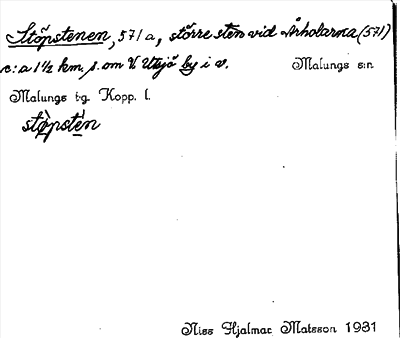 Stöpstenen, 571 a, större sten vid Årholarna (571)
c:a 1½ km. s. om V. Utsjö by i v. Malungs s:n
Malungs t-g. Kopp. l.
stöpstèn
Niss Hjalmar Matsson 1931